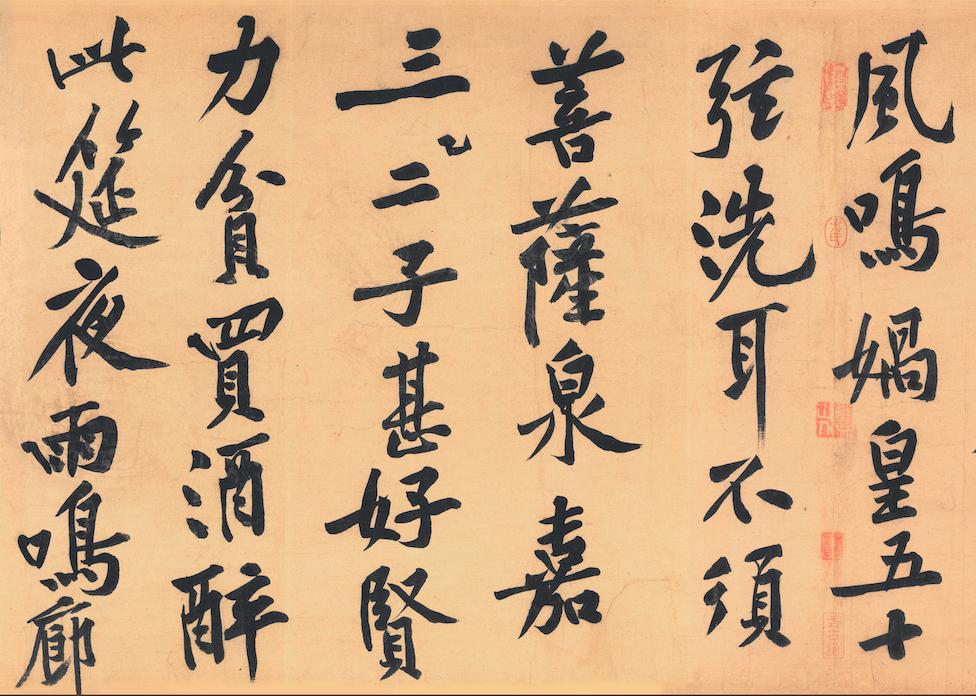 風鳴媧皇五十
弦洗耳不須
菩薩泉嘉
三二子甚好賢
力貧買酒醉
此筵夜雨鳴廊